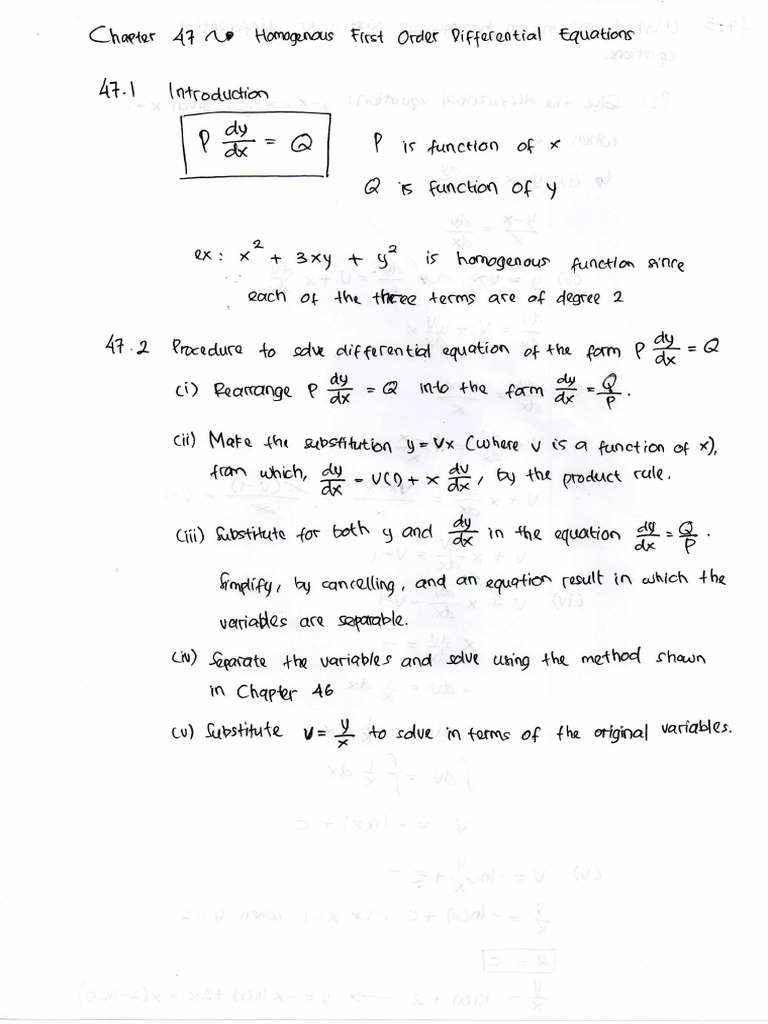 Chapter 47 ~ Homogenous First Order Differential Equations
47.1 Introduction
P dy/dx = Q
P is function of x
Q is function of y
ex: x² + 3xy + y² is homogenous function since
each of the three terms are of degree 2
47.2 Procedure to solve differential equation of the form P dy/dx = Q
(i) Rearrange P dy/dx = Q into the form dy/dx = Q/P.
(ii) Make the substitution y = vx (where v is a function of x),
from which, dy/dx = v(1) + x dv/dx, by the product rule.
(iii) Substitute for both y and dy/dx in the equation dy/dx = Q/P.
Simplify, by cancelling, and an equation result in which the
variables are separable.
(iv) Separate the variables and solve using the method shown
in Chapter 46
(v) Substitute v = y/x to solve in terms of the original variables.